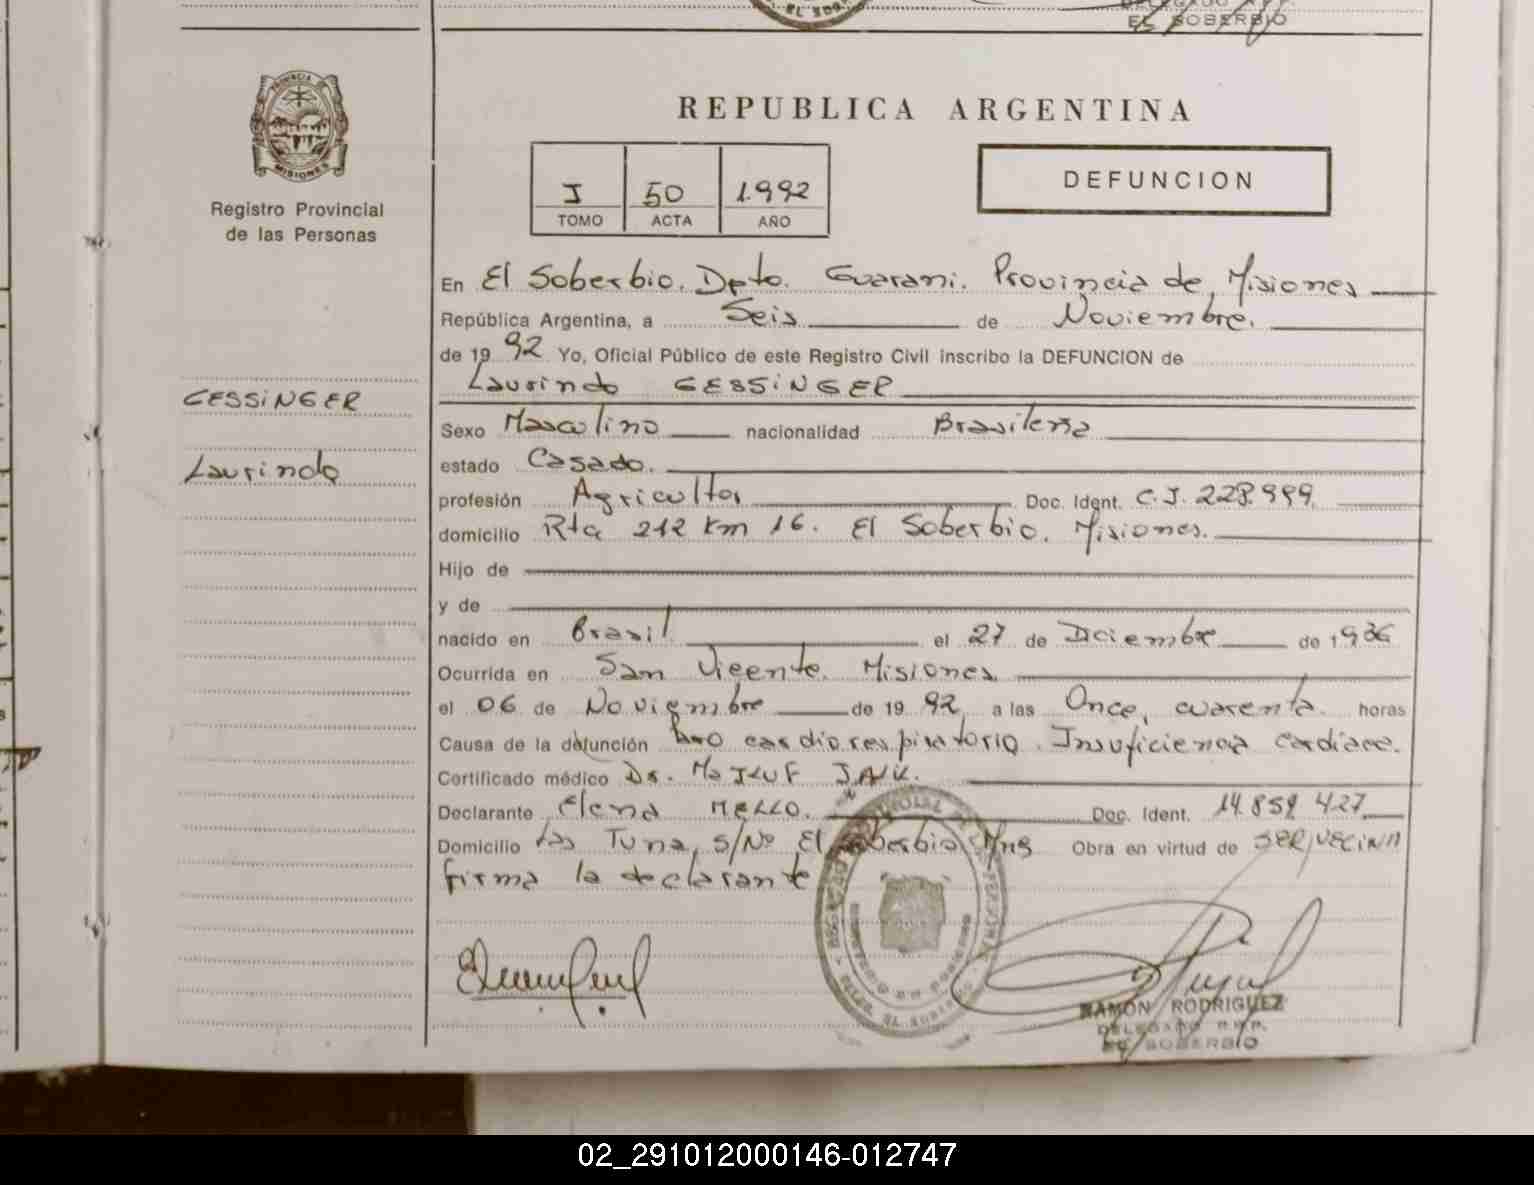 EL SOBERBIO
REPUBLICA ARGENTINA
PROVINCIA DE
MISIONES
Registro Provincial
de las Personas
I 50 1.992
TOMO ACTA AÑO
DEFUNCION
En El Soberbio. Dpto. Guarani. Provincia de Misiones
República Argentina, a Seis de Noviembre.
de 19 92 Yo, Oficial Público de este Registro Civil inscribo la DEFUNCION de
Laurindo GESSiNGER
GESSiNGER
Laurindo
Sexo Masculino nacionalidad Brasileña
estado Casado.
profesión Agricultor Doc. Ident. C.I. 228.999.
domicilio Rta 212 Km 16. El Soberbio. Misiones.
Hijo de
y de
nacido en Brasil el 27 de Diciembre de 1936
Ocurrida en San Vicente. Misiones
el 06 de Noviembre de 19 92 a las Once, cuarenta. horas
Causa de la defunción Paro cardiorespiratorio. Insuficiencia cardiaca.
Certificado médico Dr.
Declarante Elena MELLO. Doc. Ident. 14.859.427
Domicilio Las Tuna, S/Nº El Soberbio Mns Obra en virtud de SER VECINA
firma la declarante
RAMON RODRIGUEZ
DELEGADO R.P.P.
EL SOBERBIO
02_291012000146-012747